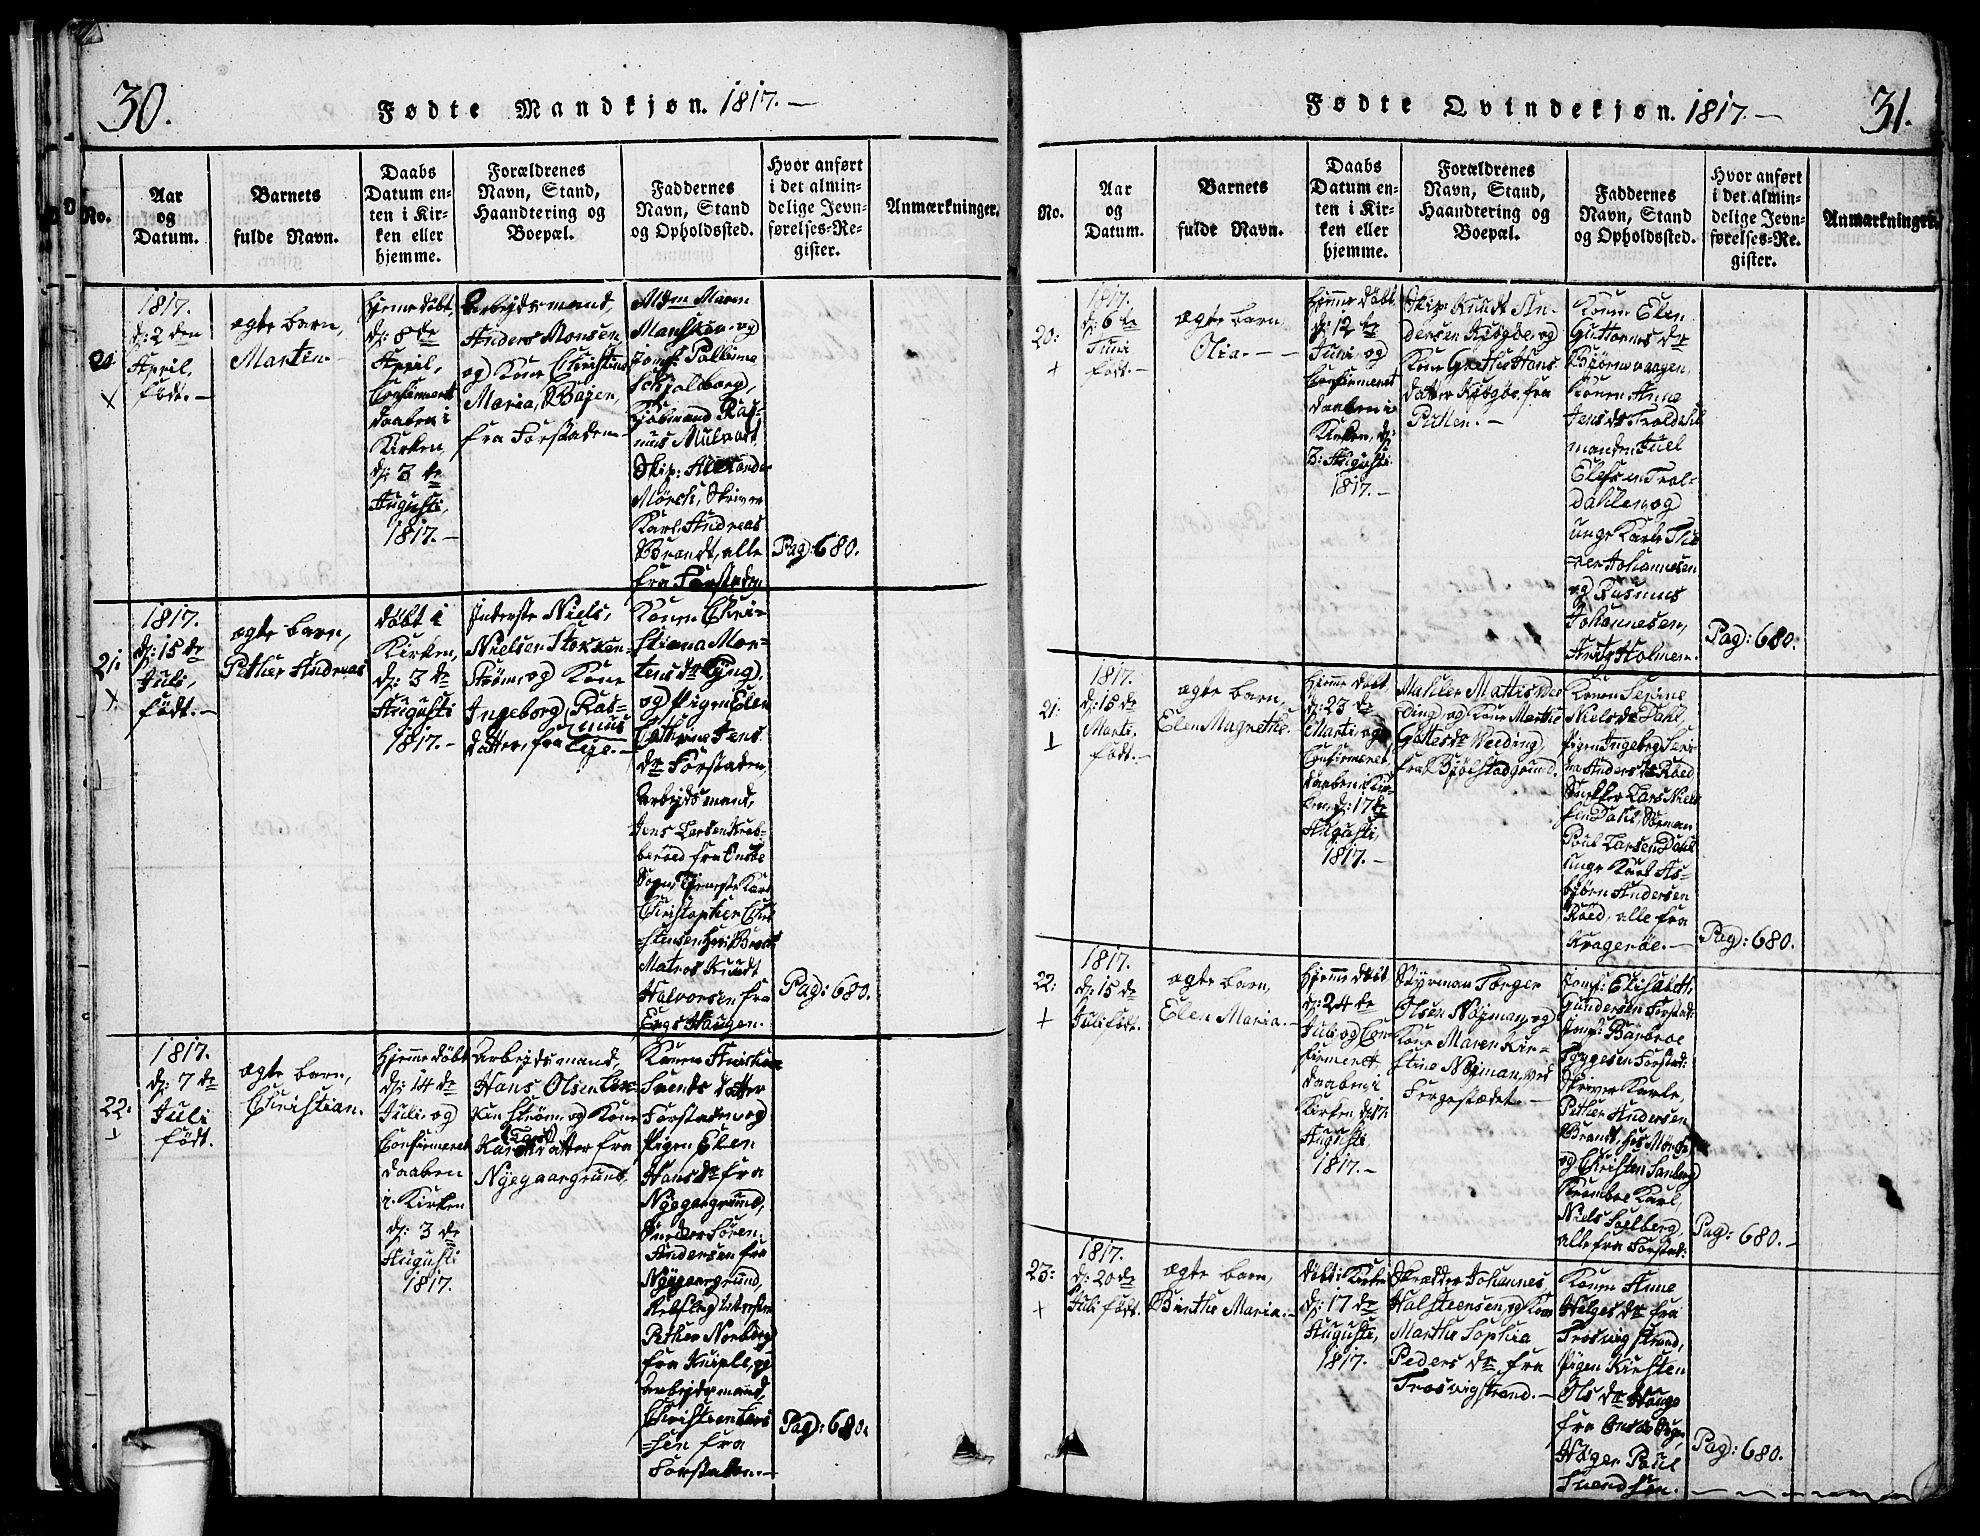 30.
Fødte Mandkjøn. 1817.
No.
Aar
og
Datum.
Barnets
fulde Navn.
Daabs
Datum en-
ten i Kir-
ken eller
hjemme.
Forældrenes
Navn, Stand,
Haandtering og
Boepæl.
Faddernes
Navn, Stand
og Opholdssted.
Hvor anført
i det almin-
delige Jevn-
førelses-Re-
gister.
Anmærkninger.
20
1817.
d: 2 den
April,
født.
ægte barn,
Marten.
hjemedøbt,
d: 8 de
April,
Confirmeret
daaben i
Kirken,
d: 3 de
Augusti,
1817.
Arbejdsmand,
Anders Monsen,
og Kone Christine
Maria, Bojen,
fra Forstaden
Mdm Maren
og
Jomf:
Schjolborg,
Ras-
mus
Skip: Alexander
Mørch, Skriver
Karl Andreas
Brandt, alle
fra Forstaden
Pag: 680.
21.
1817.
d: 15 de
Juli,
født.
ægte barn,
Pether Andreas
døbt i
Kirken,
d: 3 de
Augusti
1817.
Inderste Niels,
Nielsen Stokken-
Strøm, og Kone
Ingeborg Ras-
mus
datter, fra Leje.
Konen Chri-
stiana Mor-
tens dr Lyng,
og Pigen Elen
Cathrine Jens
dr Forstaden,
Arbejdsmand,
Jens Larsen
fra Onsøe
Sogn, Tjeneste Karl
Christopher Chri-
stensen
Matros Knudt
Halvorsen fra
Haugen.
Pag: 680.
22.
1817.
d: 7 de
Juli
født.
ægte barn,
Christian.
hjemme døbt
d: 14 de
Juli, og
Confirmeret
daaben
i Kirken
d: 3 de
Augusti
1817.
Arbejdsmand,
Hans Olsen
Strøm, og Kone
Kari datter fra
Nygaardgrund.
Konen
Svends datter
Forstaden, og
Pigen Elen
Hans dr fra
Nygaargrund,
Søren
Andersen fra
Nygaargrund,
Pether Norberg
fra Kniple, og
Arbejdsmand,
Christen Lars
sen fra
Forstaden.
Pag: 680.
Fødte Qvindekjøn. 1817.
31.
No.
Aar
og
Datum.
Barnets
fulde Navn.
Daabs
Datum en-
ten i Kir-
ken eller
hjemme.
Forældrenes
Navn, Stand,
Haandtering og
Boepæl.
Faddernes
Navn, Stand
og Opholdssted.
Hvor anført
i det almin-
delige Jevn-
førelses-Re-
gister.
Anmærkninger.
20:
1817.
d: 6 te
Juni
født.
ægte barn,
Olia.
hjemme døbt
d: 12 te
Juni, og
Confirmeret
daaben i
Kirken, d:
3: Augusti
1817.
Skip: Knudt An-
dersen og
Kone Grethe Hans
datter fra
Pitten.
Konen Elen
Guttorms dr
Konen Anne
Jens dr
manden Juel
Elefsen Trol-
dahlen, og
unge Karle
Johannesen
og Rasmus
Johannesen,
Holmen.
Pag: 680.
21:
1817.
d: 15 de
Marti,
født.
ægte barn,
Elen Magrethe.
hjemme døbt
d: 23 de
Marti, og
Confirmeret
daaben i Kir-
ken, d: 17 de
Augusti,
1817.
Mahler Mattis Wee
ding, og Kone Marthe
Gottes dr Weeding,
fra Bjølstadgrund.
Konen Serine
Niels dr Dahl,
Pigen Ingeborg
Anders dr Roed
Snekker Lars Niel
sen Dahl, Sørman
Poul Larsen Dahl
unge Karl As-
bjørn Andersen
Roed, alle fra
Kragerøe.
Pag: 680.
22:
1817.
d: 15 de
Juli født.
ægte barn,
Elen Maria.
hjemme døbt
d: 24 de
Juli, og Con-
firmeret
daaben i
Kirken d: 17
Augusti
1817.
Styrman Torger
Olsen Nøjman, og
Kone Maren Kir-
stine Nøjman, ved
Fergestædet.
Jomf: Elisabeth
Gundersen Forstad
Jomf: Barbroe
Tryggesen Forstad:
Skriver Karle,
Pether Andersen
Brandt, hos Mørch
og Christen Sanberg
Kramboe Karl,
Niels Soelberg,
alle fra Forstad:
Pag: 680.
23:
1817.
d: 20 de
Juli født.
ægte barn,
Birthe Maria.
døbt i Kirken
d: 17 de
Augusti,
1817.
Skrædder Johannes
Halsteensen, og Kone
Marthe Sophia
Peders dr fra
Trosvigstrand.
Konen Anne
Helges dr fra
Trosvig strand,
Pigen Kirsten
Ols dr Hauge
fra Onsøe Sogn,
Høger Poul
Svendsen.
Pag: 680.